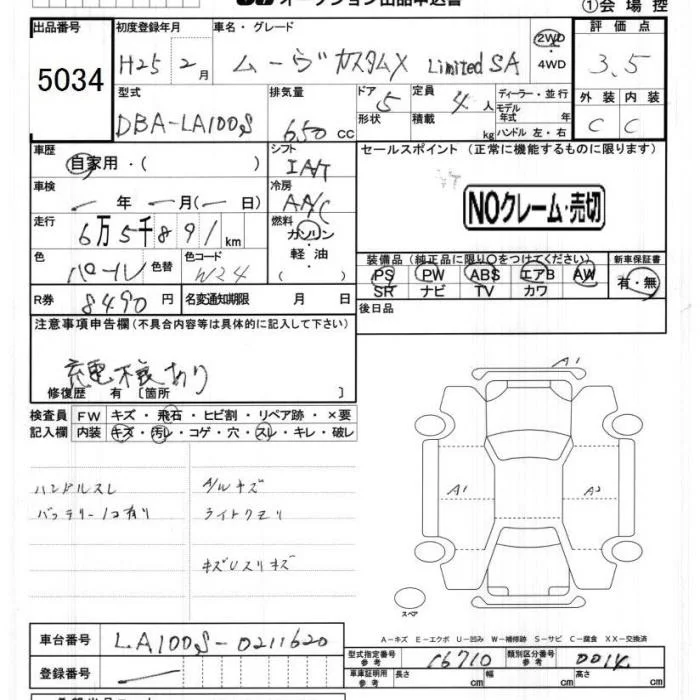 オークション出品申込書
①会場控
出品番号 初度登録年月 車名・グレード 評価点
5034 H25 2月 ムーヴ カスタムX Limited SA 2WD・4WD 3.5
型式 排気量 ドア 5 定員 4人 ディーラー・並行 外装 内装
DBA-LA100S 650cc 形状 積載 kg モデル年式 年 C C
ハンドル 左・右
車歴 シフト セールスポイント (正常に機能するものに限ります)
自家用・( ) IA/T
車検 冷房
年 月( 日) AA/C NOクレーム・売切
走行 燃料
6万5千891km ガソリン・軽油・( )
色 色替 色コード 装備品 (純正品に限り○をつけてください) 新車保証書
パール W24 PS PW ABS エアB AW 有・無
R券 8490円 名変通知期限 月 日 SR ナビ TV カワ
後日品
注意事項申告欄(不具合内容等は具体的に記入して下さい)
充電不良あり
修復歴 有 〔箇所 〕
検査員 FW キズ・飛石・ヒビ割・リペア跡・×要
記入欄 内装 キズ・汚レ・コゲ・穴・スレ・キレ・破レ
A1
ハンドルスレ A/Wキズ
A1 A2
バッテリー1コ有り ライトクモリ
キズUスリキズ
スペア
A-キズ E-エクボ U-凹み W-補修跡 S-サビ C-腐食 XX-交換済
車台番号 LA100S-0211620
型式指定番号 参考 16710 類別区分番号 参考
登録番号 車庫証明用 参考 長さ cm 幅 cm 高さ cm